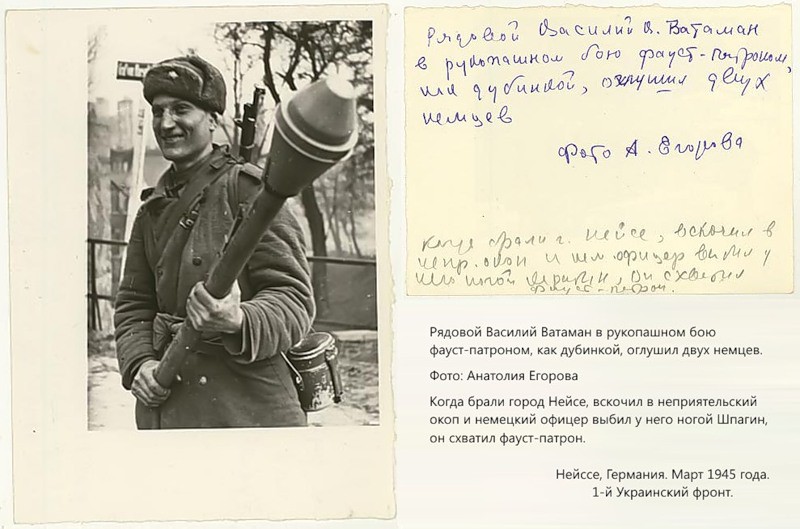 Рядовой Василий В. Ватаман
в рукопашном бою фауст-патроном,
как дубинкой, оглушил двух
немцев
Фото А. Егорова
Когда брали г. Нейсе, вскочил в
непр. окоп и нем. офицер выбил у
него ногой Шпагин, он схватил
фауст-патрон.
Рядовой Василий Ватаман в рукопашном бою
фауст-патроном, как дубинкой, оглушил двух немцев.
Фото: Анатолия Егорова
Когда брали город Нейсе, вскочил в неприятельский
окоп и немецкий офицер выбил у него ногой Шпагин,
он схватил фауст-патрон.
Нейссе, Германия. Март 1945 года.
1-й Украинский фронт.